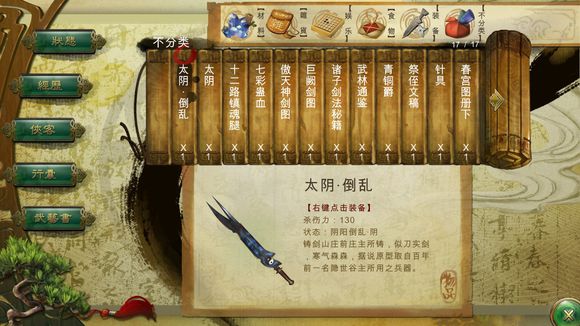 狀態
經歷
俠客
行囊
武藝書
材料
雜貨
娱乐
食物
装备
不分类
17 / 17
不分类
太阴·倒乱 x 1
太阴 x 1
十二路镇魂腿 x 1
七彩蛊血 x 1
傲天神剑图 x 1
巨阙剑图 x 1
诸子剑法秘籍 x 1
武林通鉴 x 1
青铜爵 x 1
祭侄文稿 x 1
针具 x 1
春宫图册下 x 1
太阴·倒乱
【右键点击装备】
杀伤力：130
状态：阴阳倒乱·阴
铸剑山庄前庄主所铸，似刀实剑
，寒气森森，据说原型取自百年
前一名隐世谷主所用之兵器。
物品